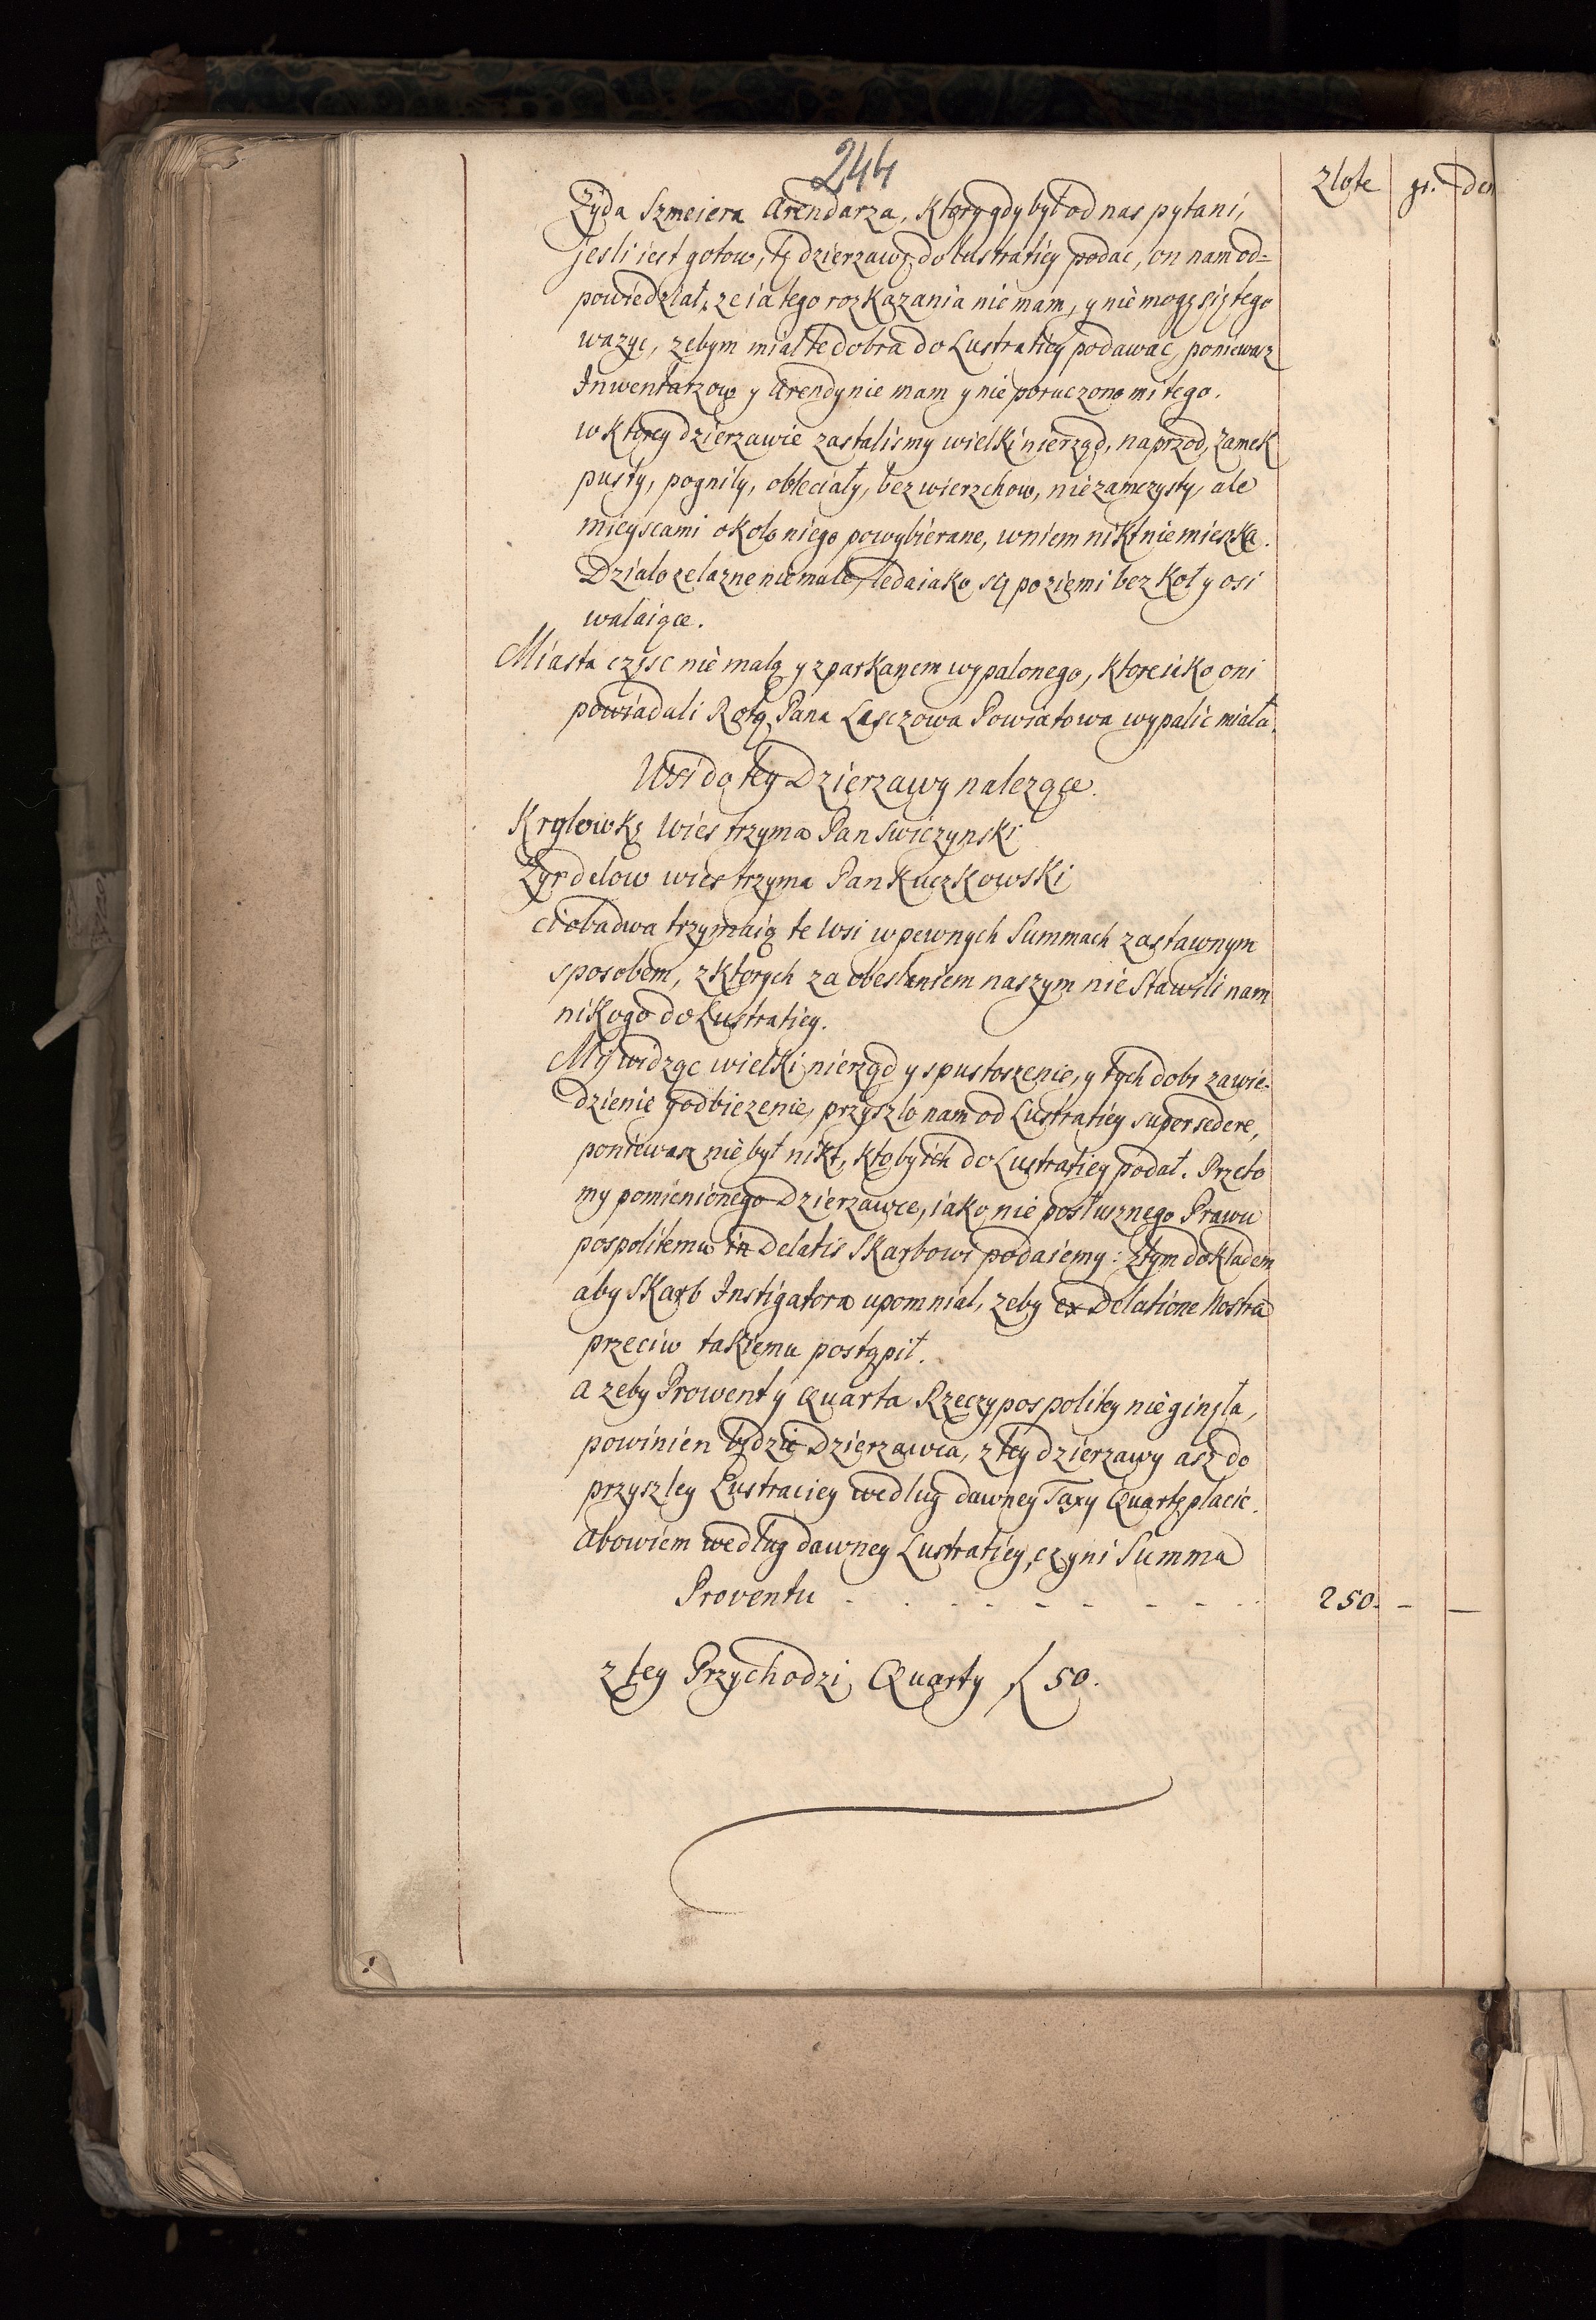 244
Złote gr. den
Zyda Szmeiera Arendarza, ktory gdy był od nas pytani,
jesli iest gotow, tę dzierzawę do Lustratiey podac, on nam od=
powiedział, ze ia tego rozkazania nie mam, y nie mogę się tego
wazyc, zebym miał te dobra do Lustratiey podawac, poniewasz
Inwentarzow y Arendy nie mam y nie poruczono mi tego.
w ktorey dzierzawie zastalismy wielki nierząd, naprzod, Zamek
pusty, pogniły, obleciały, bez wierzchow, niezamczysty, ale
mieyscami około niego powybierane, w niem nikt nie mieszka.
Działo zelazne niemałe, ledaiako się po ziemi bez koł y osi
walaiące.
Miasta częsc nie małą y z parkanem wypalonego, ktore iako oni
powiadali Rotą Pana Lasczowa Powiatowa wypalic miała.
Wsi do tey Dzierzawy nalezące.
Kryłowkę Wies trzyma Pan Swiczynski
Zyrdelow wies trzyma Pan Kuczkowski
ci obadwa trzymaią te Wsi w pewnych Summach zastawnym
sposobem, z ktorych za obesłaniem naszym nie Stawili nam
nikogo do Lustratiey.
My widząc wielki nierząd y spustoszenie, y tych dobr zawie-
dzienie y odbiezenie, przyszło nam od Lustratiey supersedere,
poniewasz nie był nikt, ktoby ich do Lustratiey podał. Przeto
my pomienionego Dzierzawce, iako nie posłusznego Prawu
pospolitemu in Delatis Skarbowi podaiemy: z tym dokładem
aby Skarb Instigatora upomniał, zeby ex Delatione Nostra
przeciw takiemu postąpił.
a zeby Prowent y Quarta Rzeczypospolitey nie ginęła,
powinien będzie Dzierzawca, z tey dzierzawy asz do
przyszłey Lustraciey według dawney Taxy Quartę płacic.
Abowiem według dawney Lustratiey, czyni Summa
Proventu - - - - - - - - 250. - —
z tey Przychodzi Quarty f. 50.